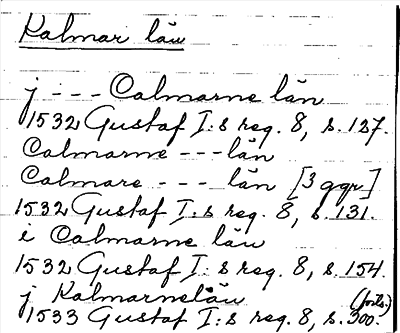 Kalmar län
j --- Calmarne län
1532 Gustaf I:s reg. 8, s. 127.
Calmarne --- län
Calmare --- län [3 ggr]
1532 Gustaf I:s reg. 8, s. 131.
i Calmarne län
1532 Gustaf I:s reg. 8, s. 154.
j Kalmarnelän
(forts.)
1533 Gustaf I:s reg. 8, s. 300.